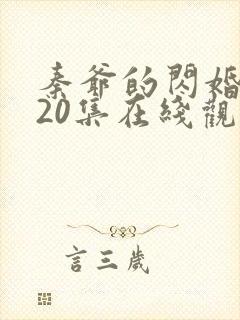 秦爺的閃婚
20集在綫觀
言三歲